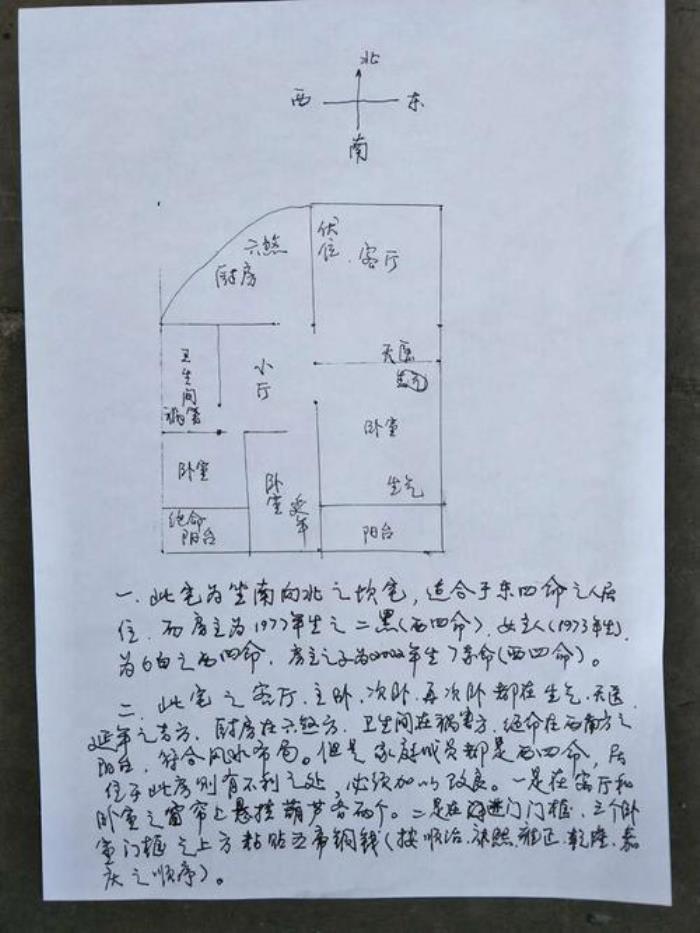 北
西 东
南
六煞
厨房
伏位
客厅
卫生间
祸害
小厅
天医
卧室
卧室
卧室
延年
生气
绝命
阳台
阳台
一、此宅为坐南向北之坎宅，适合于东四命之人居
住，而房主为1977年生之二黑(西四命)，女主人(1973年生)
为6白之西四命，房主之子为2002年生7赤命(西四命)。
二、此宅之客厅、主卧、次卧、再次卧都在生气、天医、
延年之吉方，厨房在六煞方，卫生间在祸害方，绝命在西南方之
阳台，符合风水布局。但是家庭成员都是西四命，居
住于此房则有不利之处，必须加以改良。一是在客厅和
卧室之窗帘上悬挂葫芦各两个。二是在进门门框、三个卧
室门框之上方粘贴五帝铜钱(按顺治、康熙、雍正、乾隆、嘉
庆之顺序)。